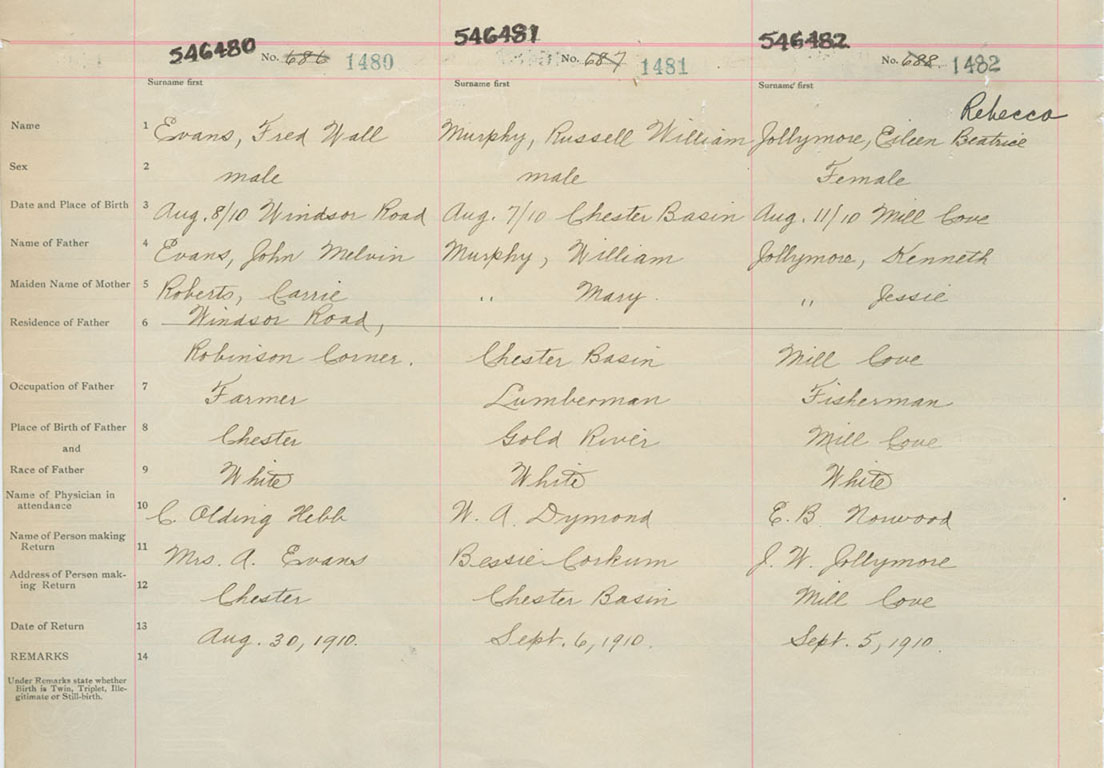 546480 546481 546482
No. 686 1480 No. 687 1481 No. 688 1482
Surname first Surname first Surname first
Rebecca
Name 1 Evans, Fred Wall Murphy, Russell William Jollymore, Eileen Beatrice
Sex 2 male male Female
Date and Place of Birth 3 Aug. 8/10 Windsor Road Aug. 7/10 Chester Basin Aug. 11/10 Mill Cove
Name of Father 4 Evans, John Melvin Murphy, William Jollymore, Kenneth
Maiden Name of Mother 5 Roberts, Carrie " Mary. " Jessie
Residence of Father 6 Windsor Road,
Robinson Corner. Chester Basin Mill Cove
Occupation of Father 7 Farmer Lumberman Fisherman
Place of Birth of Father 8 Chester Gold River Mill Cove
and
Race of Father 9 White White White
Name of Physician in
attendance 10 C. Olding Hebb W. A. Dymond E. B. Norwood
Name of Person making
Return 11 Mrs. A. Evans Bessie Corkum J. W. Jollymore
Address of Person mak-
ing Return 12 Chester Chester Basin Mill Cove
Date of Return 13 Aug. 30, 1910. Sept. 6, 1910. Sept. 5, 1910.
REMARKS 14
Under Remarks state whether
Birth is Twin, Triplet, Ille-
gitimate or Still-birth.